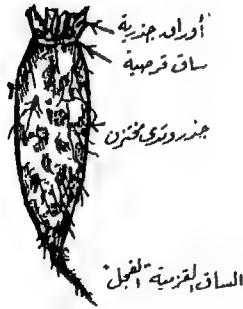 أوراق جذرية
ساق قرصية
جذر وتدى مختزن
الساق القزمية "الفجل"